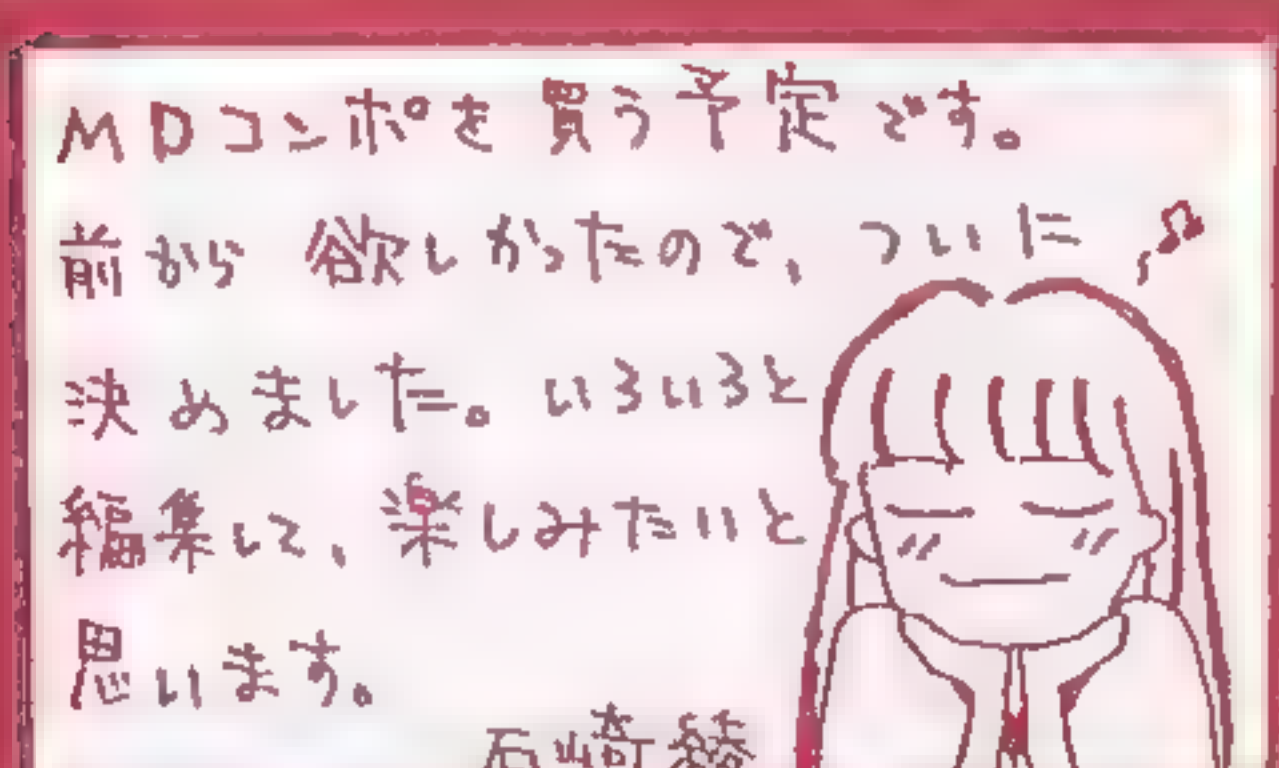 MDコンポを買う予定です。
前から欲しかったので、ついに
決めました。いろいろと
編集して、楽しみたいと
思います。
石崎綾